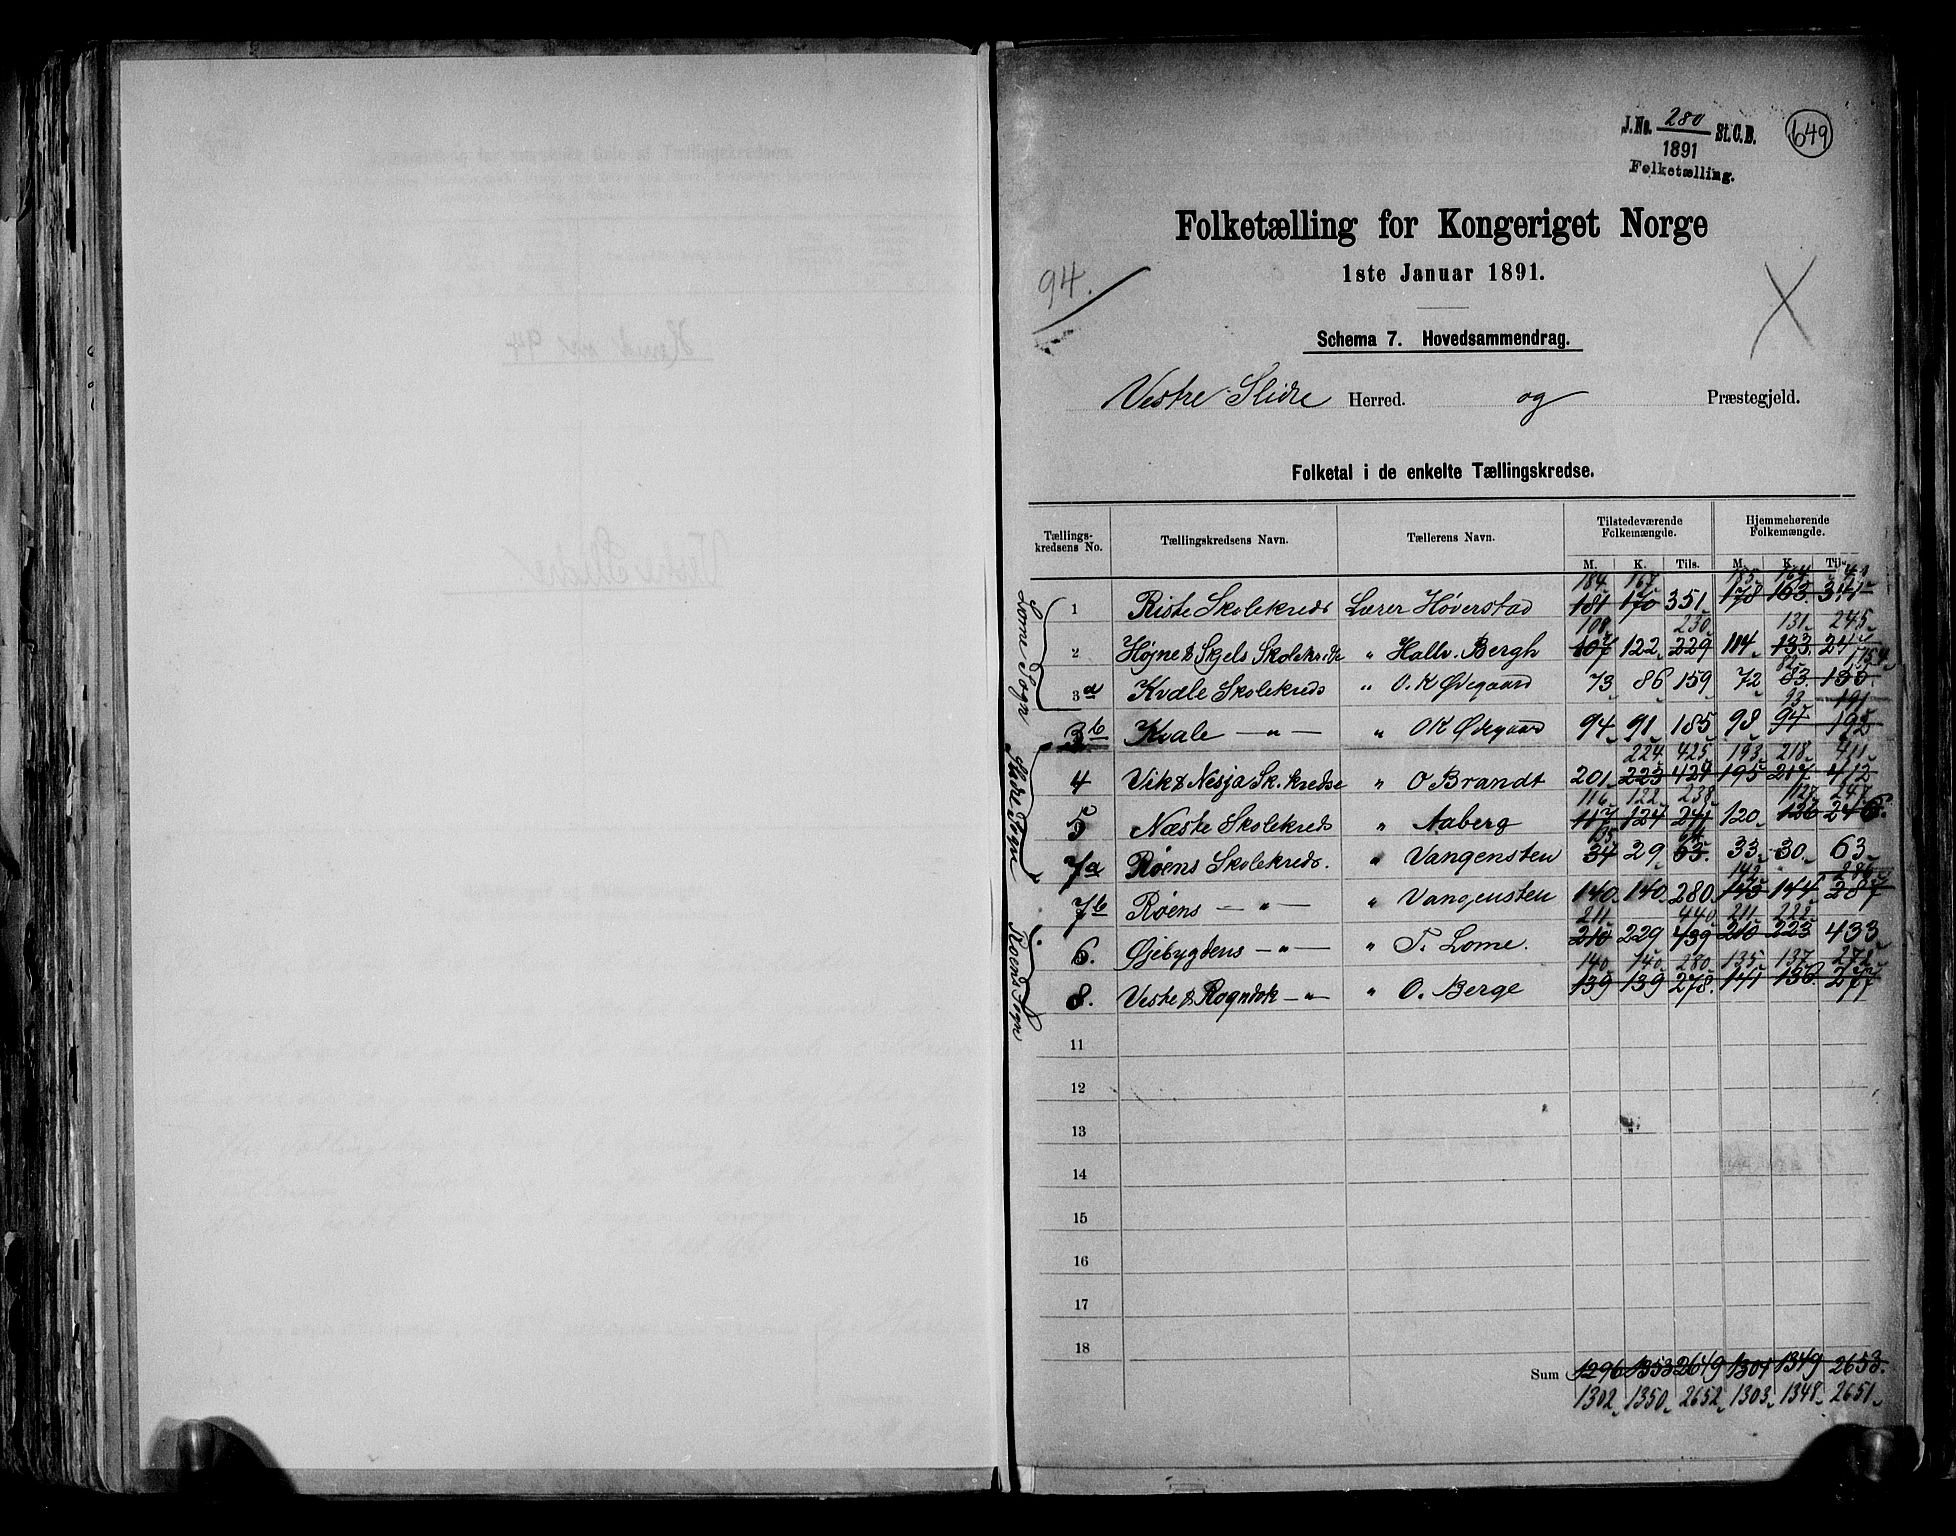 J.No. 280 St.C.B.
1891
Folketælling.
649
Folketælling for Kongeriget Norge
1ste Januar 1891.
94.
Schema 7. Hovedsammendrag.
Vestre Slidre Herred. og Præstegjeld.
Folketal i de enkelte Tællingskredse.
Tællings-kredsens No. Tællingskredsens Navn. Tællerens Navn. Tilstedeværende Folkemængde. Hjemmehørende Folkemængde.
M. K. Tils. M. K. Tils.
184 167 183 164
1 Riste Skolekreds Lærer Høverstad 181 170 351 178 163 341
108 230 131 245
2 Højne & Skolekredse " Hallv. Bergh 107 122 229 114 133 247
82 154
3a Kvale Skolekreds " O. K Øvegaard 73 86 159 72 83
93 191
3b Kvale — " — " OK Øvegaard 94 91 185 98 94 192
224 425 193 218 411
4 Vik & Nesja Sk. kredse " O Brandt 201 223 424 195 217 412
116 122 238 128 248
5 Næste Skolekreds " Aaberg 117 124 241 120 126 246
35 64
7a Røens Skolekreds. " Vangensten 34 29 63 33 30 63
142 286
7b Røens — " — " Vangensten 140 140 280 143 144 287
211 440 211 222
6. Øjebygdens — " — " T. Lome. 210 229 439 210 223 433
140 140 280 135 137 272
8. Veste & Rogndok — " — " O. Berge 139 139 278 141 136 277
Lome Sogn
Slidre Sogn
Røens Sogn
11
12
13
14
15
16
17
18
Sum 1296 1353 2649 1304 1349 2653
1302 1350 2652 1303 1348 2651